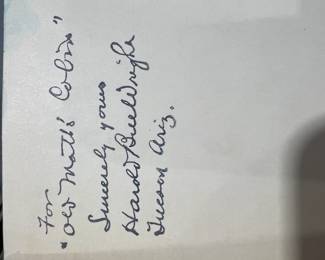 For
"Old Matt's Cabin"
Sincerely yours
Harold Bell Wright
Tucson Ariz.